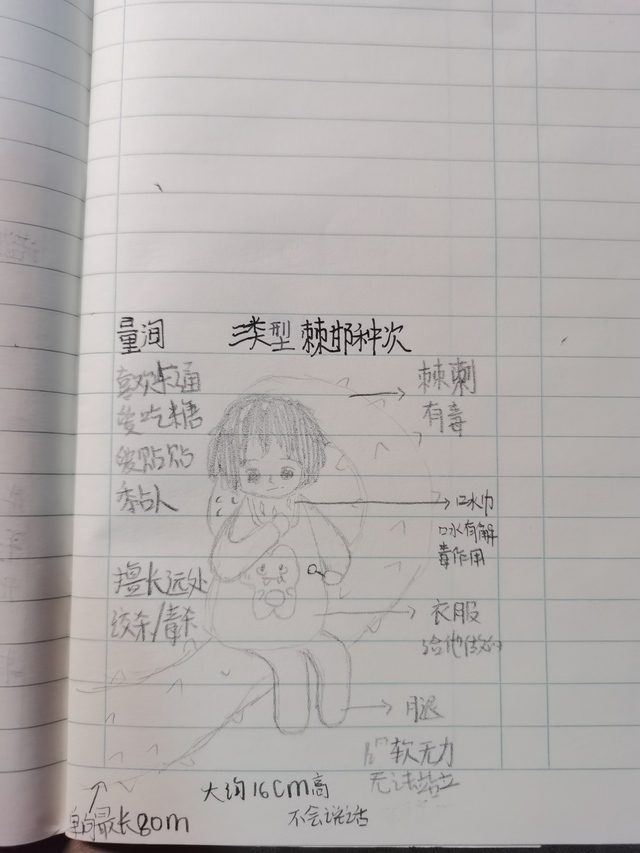 量涧
三类型 棘邯种次
喜欢卡通
爱吃糖
爱贴贴
香占人
擅长远处
绞杀/毒杀
棘刺
有毒
口水巾
口水有解
毒作用
衣服
给他做的
腿
软无力
无法站立
大约16cm高
不会说话
最长80m